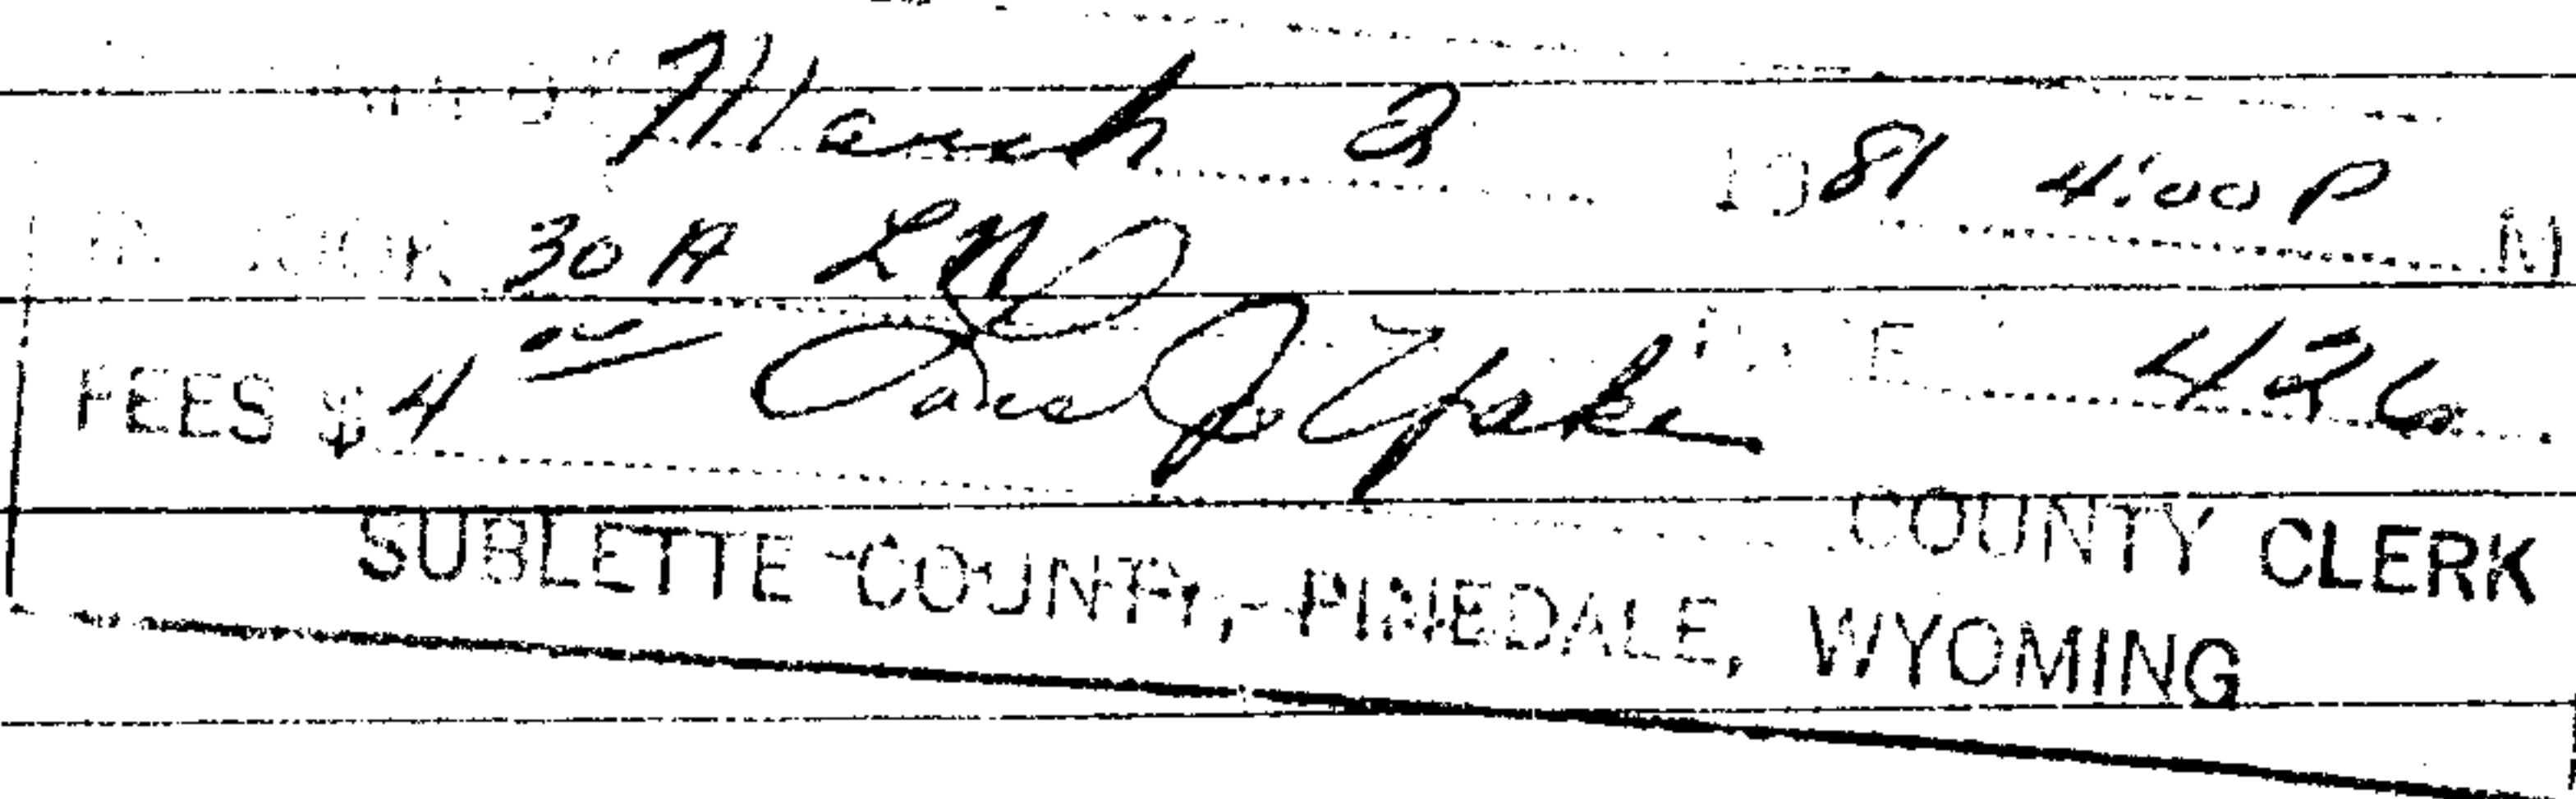 March 3 1981 4:00 P M
BOOK 30 A
FEES $ 4 PAGE 426
COUNTY CLERK
SUBLETTE COUNTY, PINEDALE, WYOMING